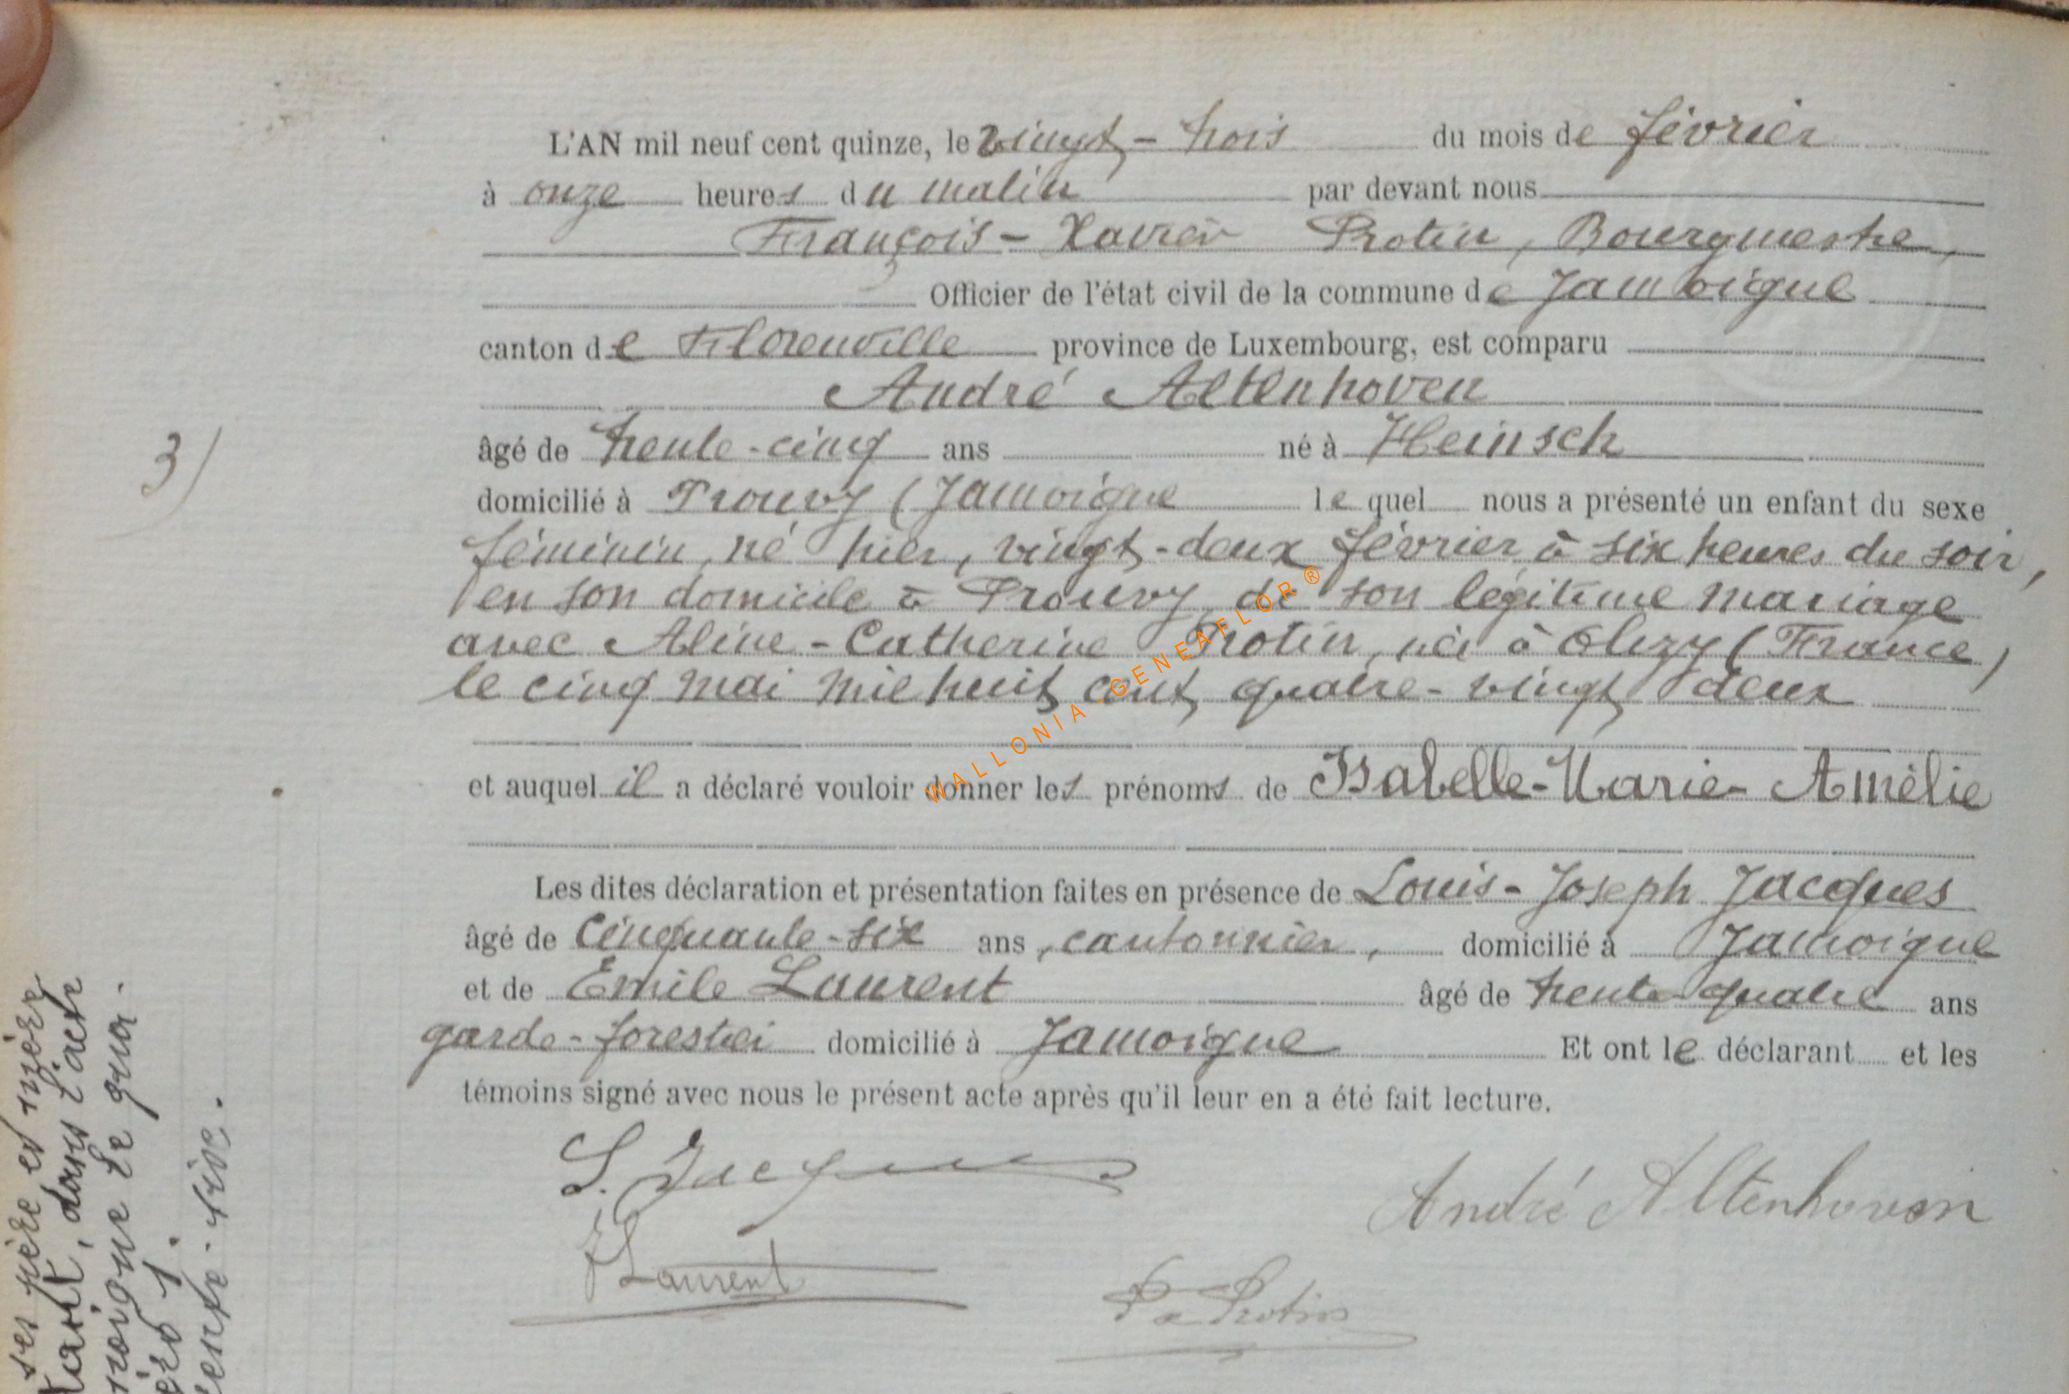 L'AN mil neuf cent quinze, le vingt-trois du mois de février
à onze heures du matin par devant nous
François-Xavier Protin, Bourgmestre,
Officier de l'état civil de la commune de Jamoigne
canton de Florenville province de Luxembourg, est comparu
André Altenhoven
âgé de trente-cinq ans né à Heinsch
3)
domicilié à Prouvy (Jamoigne le quel nous a présenté un enfant du sexe
féminin, né hier, vingt-deux février à six heures du soir,
en son domicile à Prouvy, de son légitime mariage
avec Aline-Catherine Protin, née à Olizy (France)
le cinq mai mil huit cent quatre-vingt deux
et auquel il a déclaré vouloir donner les prénoms de Isabelle-Marie-Amélie
Les dites déclaration et présentation faites en présence de Louis-Joseph Jacques
âgé de cinquante-six ans, cantonnier, domicilié à Jamoigne
et de Emile Laurent âgé de trente-quatre ans
garde-forestier domicilié à Jamoigne Et ont le déclarant et les
témoins signé avec nous le présent acte après qu'il leur en a été fait lecture.
L. Jacques
André Altenhoven
E Laurent
Protin
ses père et mère
dans l'acte
le qua-
WALLONIA-GENEAFLOR®